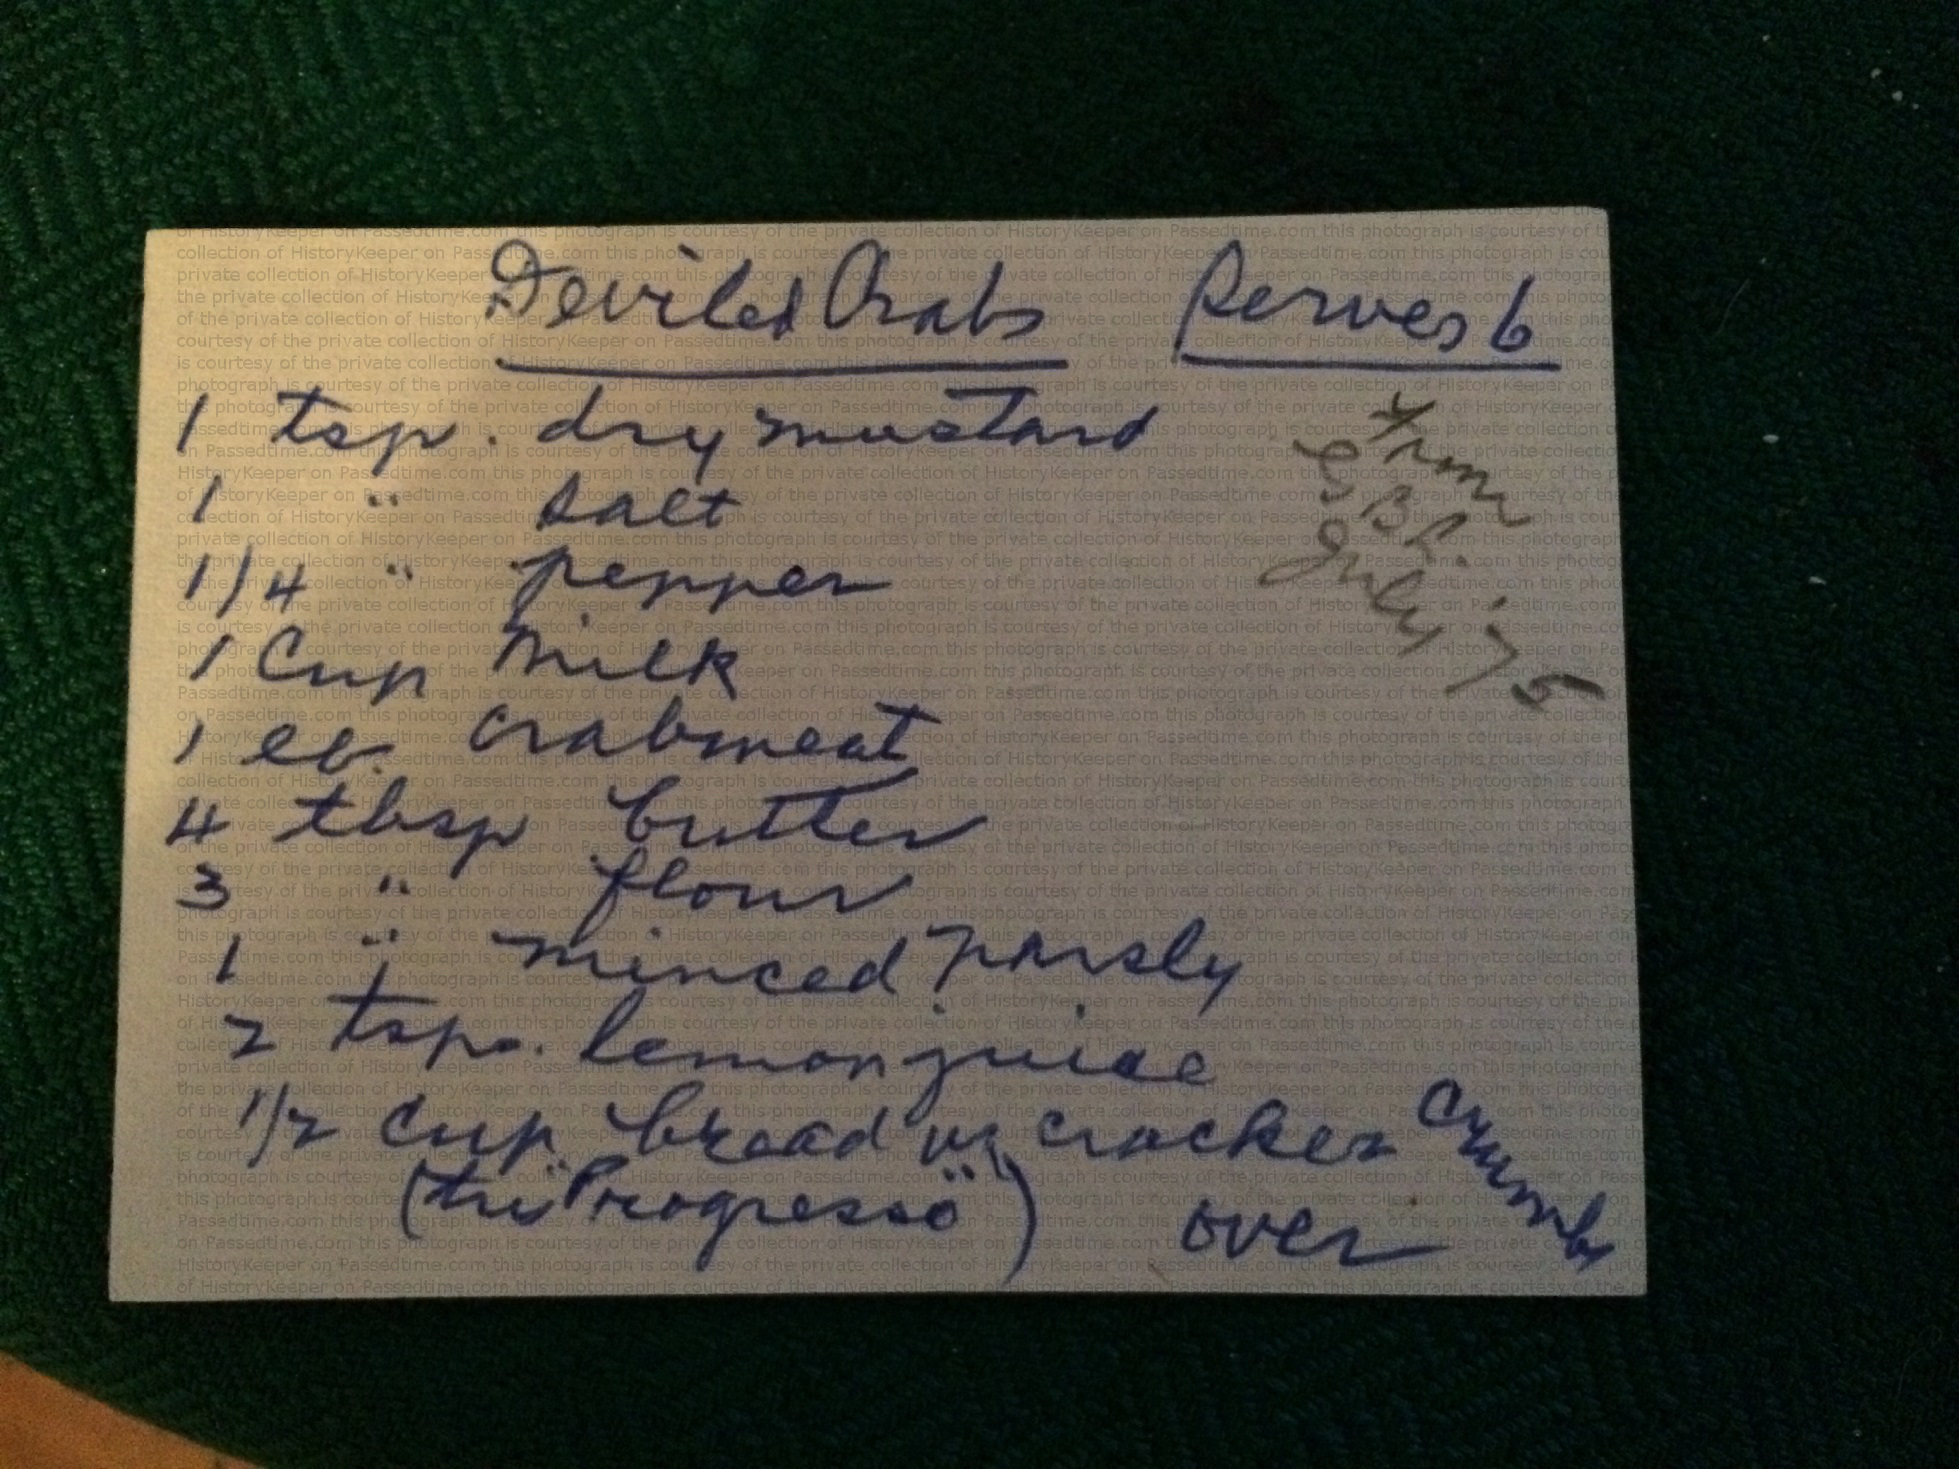 Deviled Crabs Serves 6
1 tsp. dry mustard
1 " salt
1/4 " pepper
1 Cup Milk
1 lb. crabmeat
4 tbsp butter
3 " flour
1 " minced parsly
2 tsps. lemon juice
1/2 cup bread or cracker crumbs
(try "Progresso") over
From
July '75
this photograph is courtesy of the private collection of HistoryKeeper on Passedtime.com